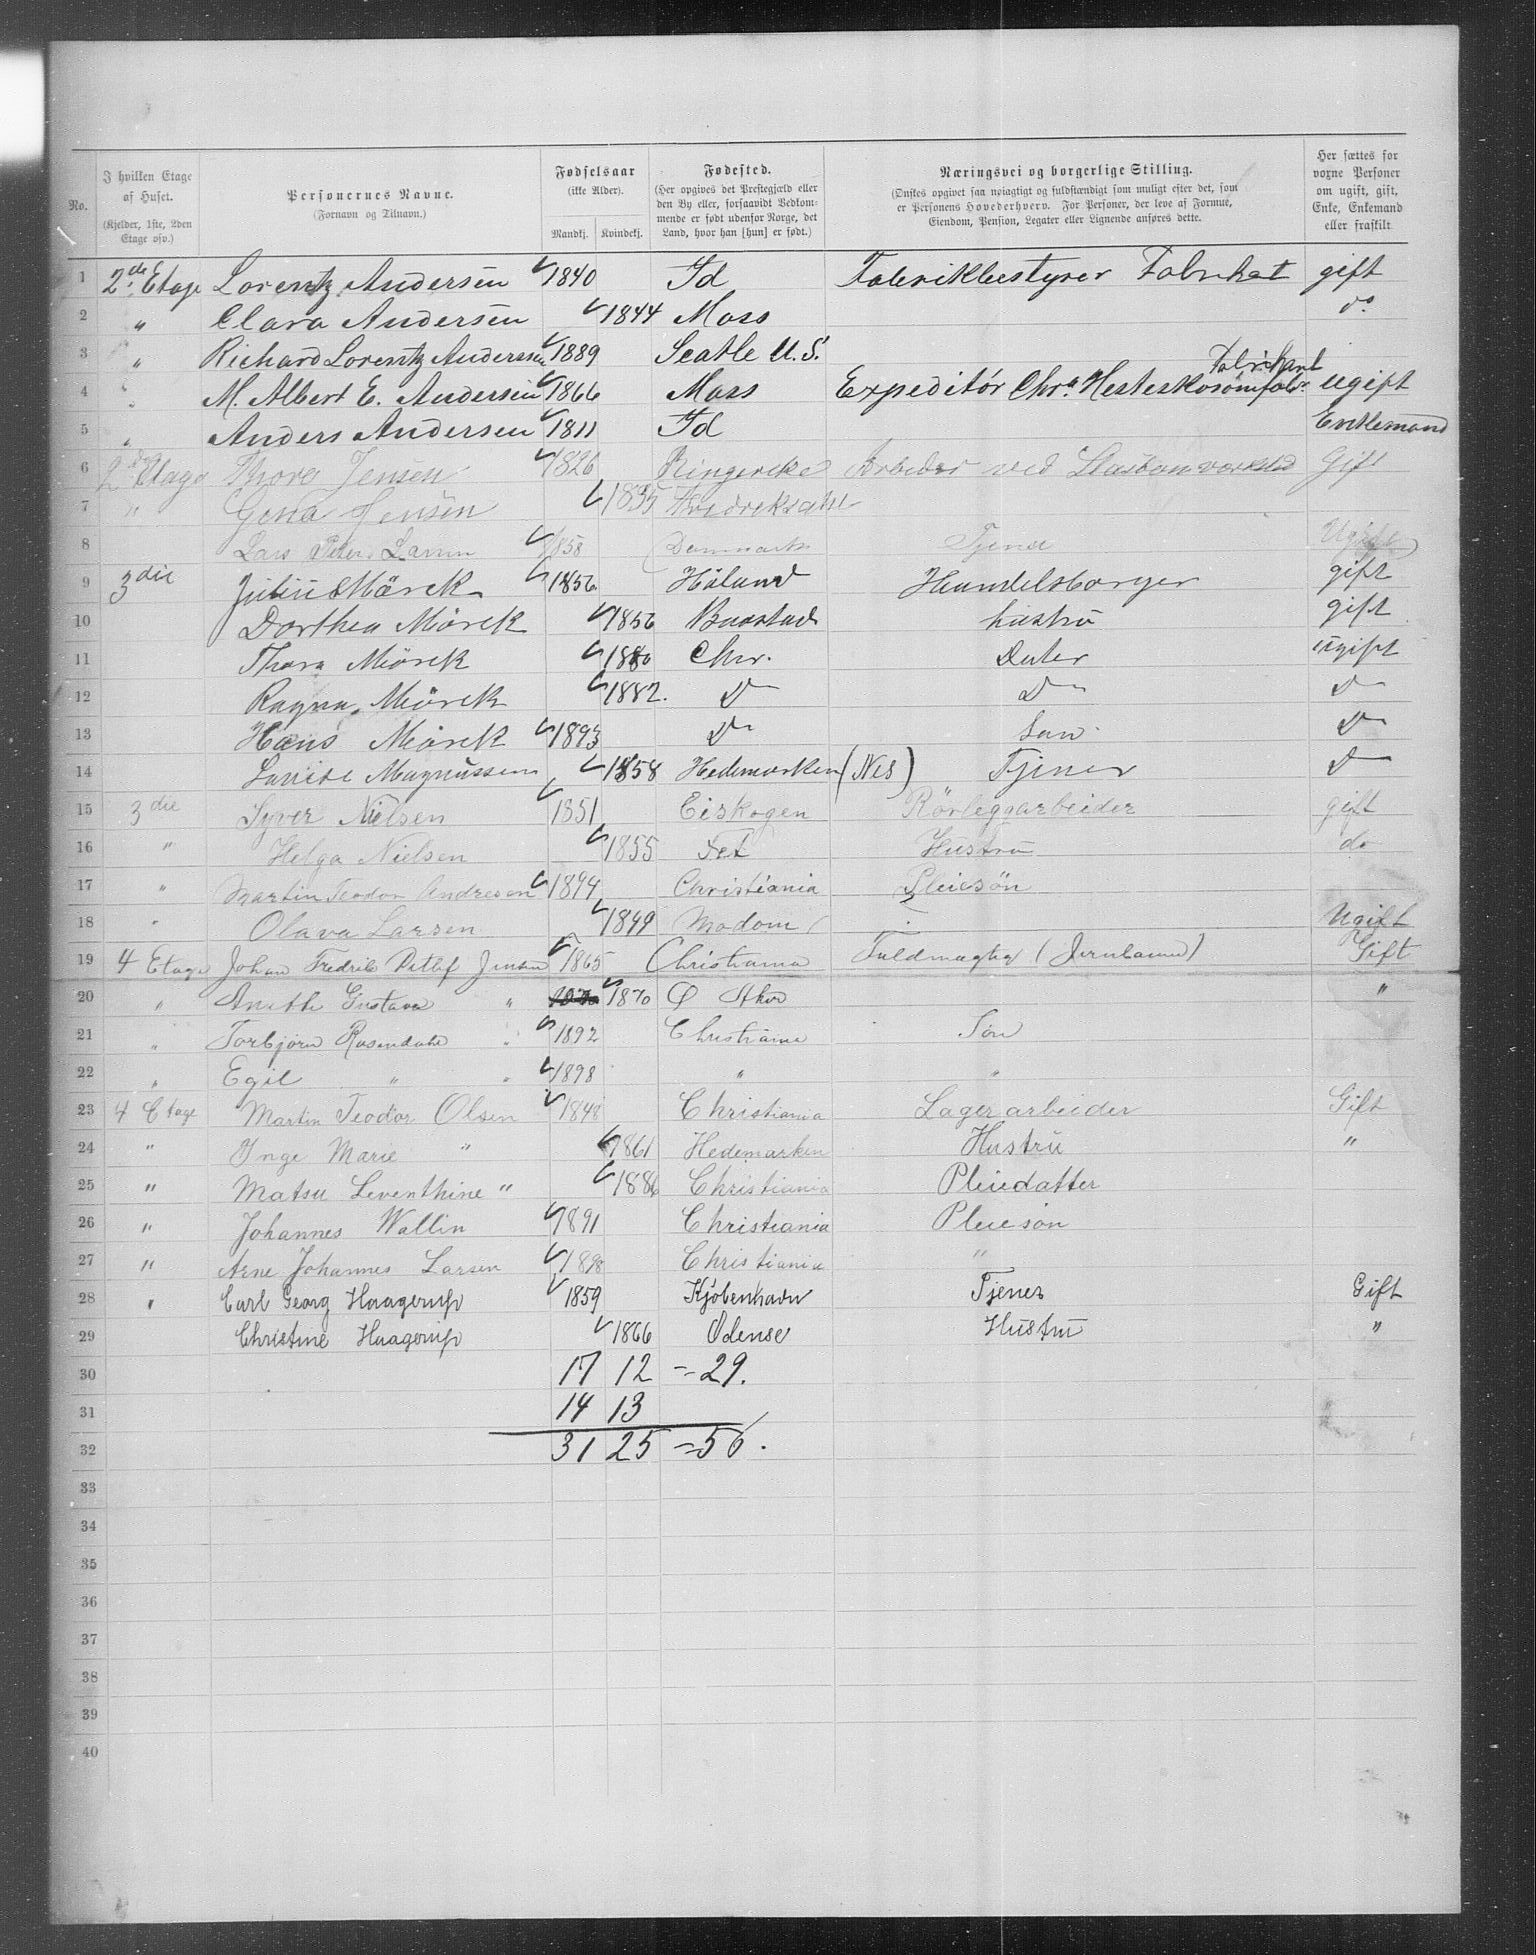 No. | I hvilken Etage af Huset. (Kjelder, 1ste, 2den Etage osv.) | Personernes Navne. (Fornavn og Tilnavn.) | Fødselsaar (ikke Alder). Mandkj. Kvindekj. | Fødested. (Her opgives det Præstegjæld eller den By eller, forsaavidt Vedkommende er født udenfor Norge, det Land, hvor han [hun] er født.) | Næringsvei og borgerlige Stilling. (Ønskes opgivet saa nøiagtigt og fuldstændigt som muligt efter det, som er Personens Hovederhverv. For Personer, der leve af Formue, Eiendom, Pension, Legater eller Lignende anføres dette. | Her sættes for voxne Personer om ugift, gift, Enke, Enkemand eller fraskilt.
1 2de Etage Lorentz Andersen 1840 Id Fabrikbestyrer Fabrikat gift
2 " Clara Andersen 1844 Moss do
3 " Richard Lorentz Andersen 1889 Seatle U.S.
Fabrikant
4 " M. Albert E. Andersen 1866 Moss Expeditör Chr.a Hesteskosömfabr. ugift
5 " Anders Andersen 1811 Id Enkemand
6 2d Etage Thore Jensen 1826 Ringereke Arbeder ved Gift
7 " Gena Jensen 1835
8 Lars Peter 1858 Danmark Tjener Ugift
9 3die Mörck 1856 Höland Handelsborger gift
10 Dorthea Mörck 1856 Baastad hustru gift
11 Thora Mörck 1880 Chr. Dater ugift
12 Ragna Mörck 1882. Do Do Do
13 Hans Mörck 1893 Do Søn Do
14 Lovise Magnussen 1858 Hedemarken (Nes) Tjener Do
15 3die Syver Nielsen 1851 Eiskogen Rörleggarbeider gift
16 " Helga Nielsen 1855 Fet Hustru do
17 " Martin Teodor Andresen 1894 Christiania Pleiesön
18 " Olava Larsen 1849 Modom Ugift
19 4 Etage Johan Fredrik Ditlef Jensen 1865 Christiania Fuldmægtig (Jernbanen) Gift
20 " Anethe Gustava " 1870 Ø Aker "
21 " Torbjørn Rosendahl " 1892 Christiania Søn
22 " Egil " " 1898 " "
23 4 Etage Martin Teodor Olsen 1848 Christiania Lagerarbeider Gift
24 " Inge Marie " 1861 Hedemarken Hustru "
25 " Matsu Leventhine " 1886 Christiania Pleiedatter
26 " Johannes Wallin 1891 Christiania Pleiesøn
27 " Arne Johannes Larsen 1898 Christiania "
28 " Carl Georg Haagerup 1859 Kjøbenhavn Tjener Gift
29 Christine Haagerup 1866 Odense Hustru "
30 17 12 = 29.
31 14 13
32 31 25 = 56.
33
34
35
36
37
38
39
40